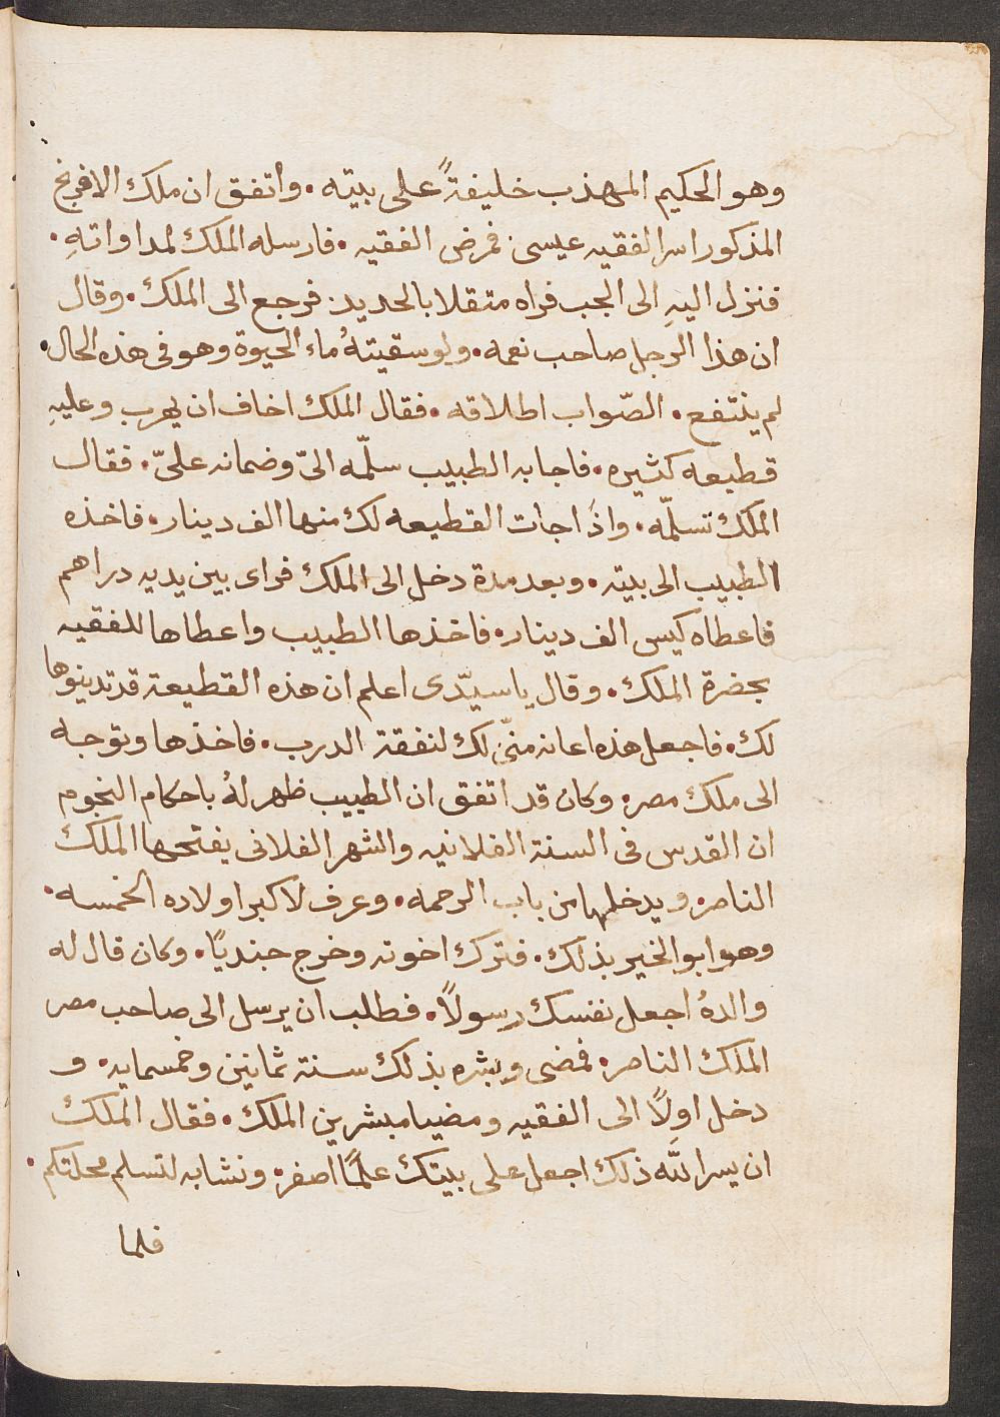 وهو الحكيم المهذب خليفةً على بيته. واتفق ان ملك الافرنج
المذكور اسر الفقيه عيسى. فمرض الفقيه. فارسله الملك لمداواتهِ.
فنزل اليهِ الى الجب فراه متقلا بالحديد. فرجع الى الملك. وقال
ان هذا الرجل صاحب نعمه. ولو سقيتهُ ماء الحيوة وهو فى هذه الحال.
لم ينتفع. الصّواب اطلاقه. فقال الملك اخاف ان يهرب وعليهِ
قطيعه كثيره. فاجابه الطبيب سلّمه الىّ وضمانه علىّ. فقال
الملك تسلّمه. واذا جات القطيعه لك منها الف دينار. فاخذه
الطبيب الى بيته. وبعد مدة دخل الى الملك فراى بين يديه دراهم
فاعطاه كيس الف دينار. فاخذها الطبيب واعطاها للفقيه
بحضرة الملك. وقال يا سيّدى اعلم ان هذه القطيعة قد تدينوها
لك. فاجعل هذه اعانه منّى لك لنفقة الدرب. فاخذها وتوجه
الى ملك مصر. وكان قد اتفق ان الطبيب ظهر لهُ باحكام النجوم
ان القدس فى السنة الفلانيه والشهر الفلانى يفتحها الملك
الناصر. ويدخلها من باب الرحمه. وعرف لاكبر اولاده الخمسه.
وهو ابو الخير بذلك. فترك اخوته وخرج جنديًا. وكان قال له
والدهُ اجعل نفسك رسولاً. فطلب ان يرسل الى صاحب مصر
الملك الناصر. فمضى وبشره بذلك سنة ثمانين وخمسمايه. و
دخل اولاً الى الفقيه ومضيا مبشرين الملك. فقال الملك
ان يسر الله ذلك اجعل على بيتك علمًا اصفر. ونشابه لتسلم محلتكم.
فلما